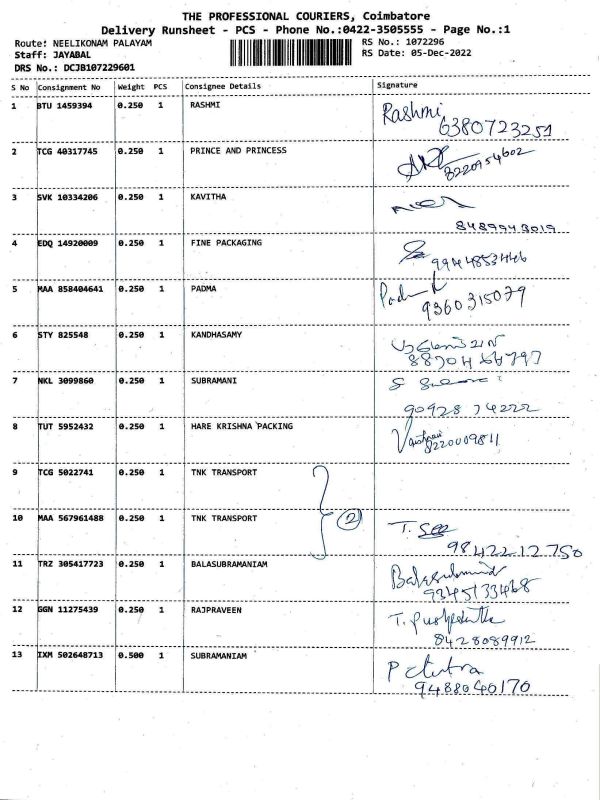 THE PROFESSIONAL COURIERS, Coimbatore
Delivery Runsheet - PCS - Phone No.:0422-3505555 - Page No.:1
Route: NEELIKONAM PALAYAM RS No.: 1072296
Staff: JAYABAL RS Date: 05-Dec-2022
DRS No.: DCJB107229601
S No Consignment No Weight PCS Consignee Details Signature
1 BTU 1459394 0.250 1 RASHMI Rashmi
6380723251
2 TCG 40317745 0.250 1 PRINCE AND PRINCESS
8220954602
3 SVK 10334206 0.250 1 KAVITHA
8489943019
4 EDQ 14920009 0.250 1 FINE PACKAGING
9944853446
5 MAA 858404641 0.250 1 PADMA
9360315079
6 STY 825548 0.250 1 KANDHASAMY
7 NKL 3099860 0.250 1 SUBRAMANI
90928 74222
8 TUT 5952432 0.250 1 HARE KRISHNA PACKING
8220009811
9 TCG 5022741 0.250 1 TNK TRANSPORT
2
10 MAA 567961488 0.250 1 TNK TRANSPORT
9842212750
11 TRZ 305417723 0.250 1 BALASUBRAMANIAM
9345133468
12 GGN 11275439 0.250 1 RAJPRAVEEN
8428089912
13 IXM 502648713 0.500 1 SUBRAMANIAM
9488040170